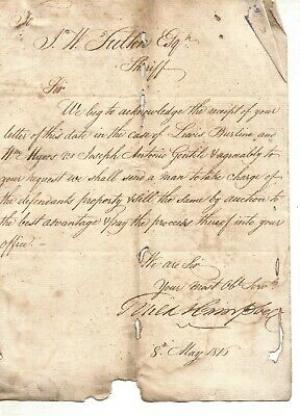 To
J. W. Esqr.
Sheriff
Sir
We beg to acknowledge the receipt of your
letter of this date in the case of Lewis Burline and
Wm. Myers vs Joseph Antonio Gentile & agreeably to
your request we shall send a man to take charge of
the defendants property & sell the same by auction to
the best advantage & pay the process thereof into your
office.
We are Sir
Your most Obt. Servts.
8th May 1815